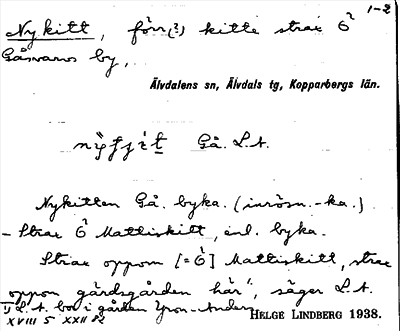 1-2
Nykitt, förr(?) kitte strax Ö
Gåsvarvs by,
Älvdalens sn, Älvdals tg, Kopparbergs län.
Gå. L.A.
Nykitten Gå. byka. (inrösn.-ka.)
- Strax Ö Mattiskitt, enl. byka.
Strax oppom [= Ö] Mattiskitt, strax
oppom gärdsgården här", säger L.A.
1) L.A. bor i gården Yvon-Anders
XVIII 5 XXII 82
HELGE LINDBERG 1938.